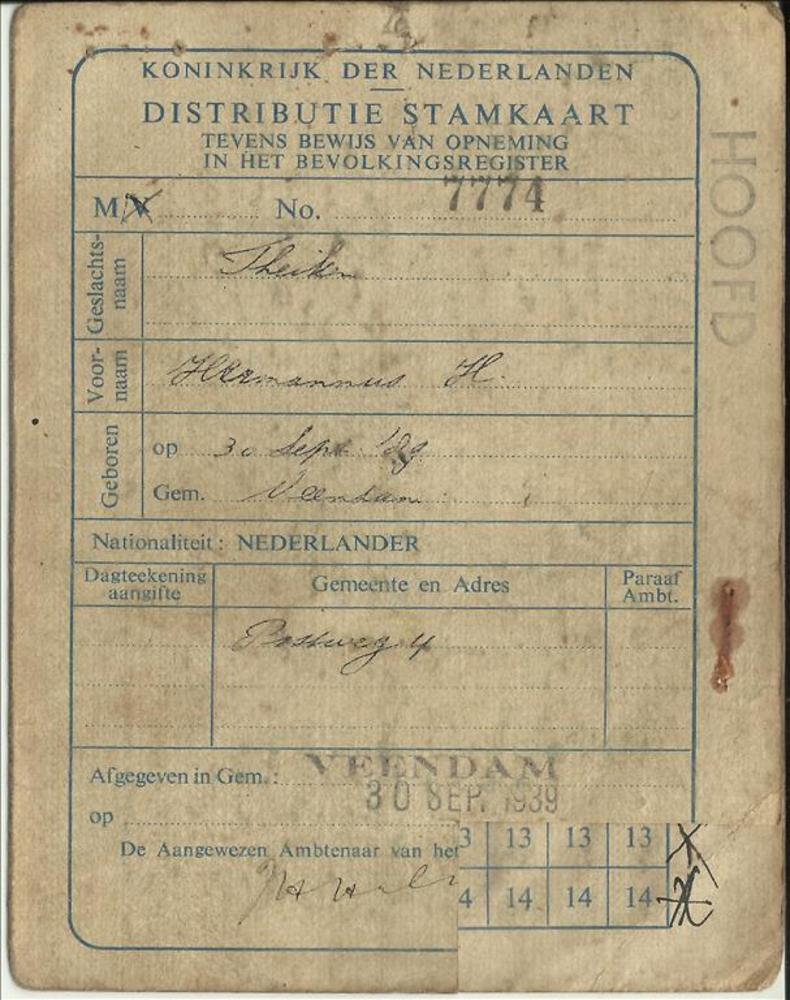 KONINKRIJK DER NEDERLANDEN
DISTRIBUTIE STAMKAART
TEVENS BEWIJS VAN OPNEMING
IN HET BEVOLKINGSREGISTER
M/V No. 7774
HOOFD
Geslachts-
naam
Theiken
Voor-
naam
Hermannus H.
Geboren
op 30 Sept. '89
Gem. Veendam
Nationaliteit: NEDERLANDER
Dagteekening
aangifte
Gemeente en Adres
Paraaf
Ambt.
Postweg 4
Afgegeven in Gem.: VEENDAM
op 30 SEP. 1939
De Aangewezen Ambtenaar van het
3 13 13 13
4 14 14 14